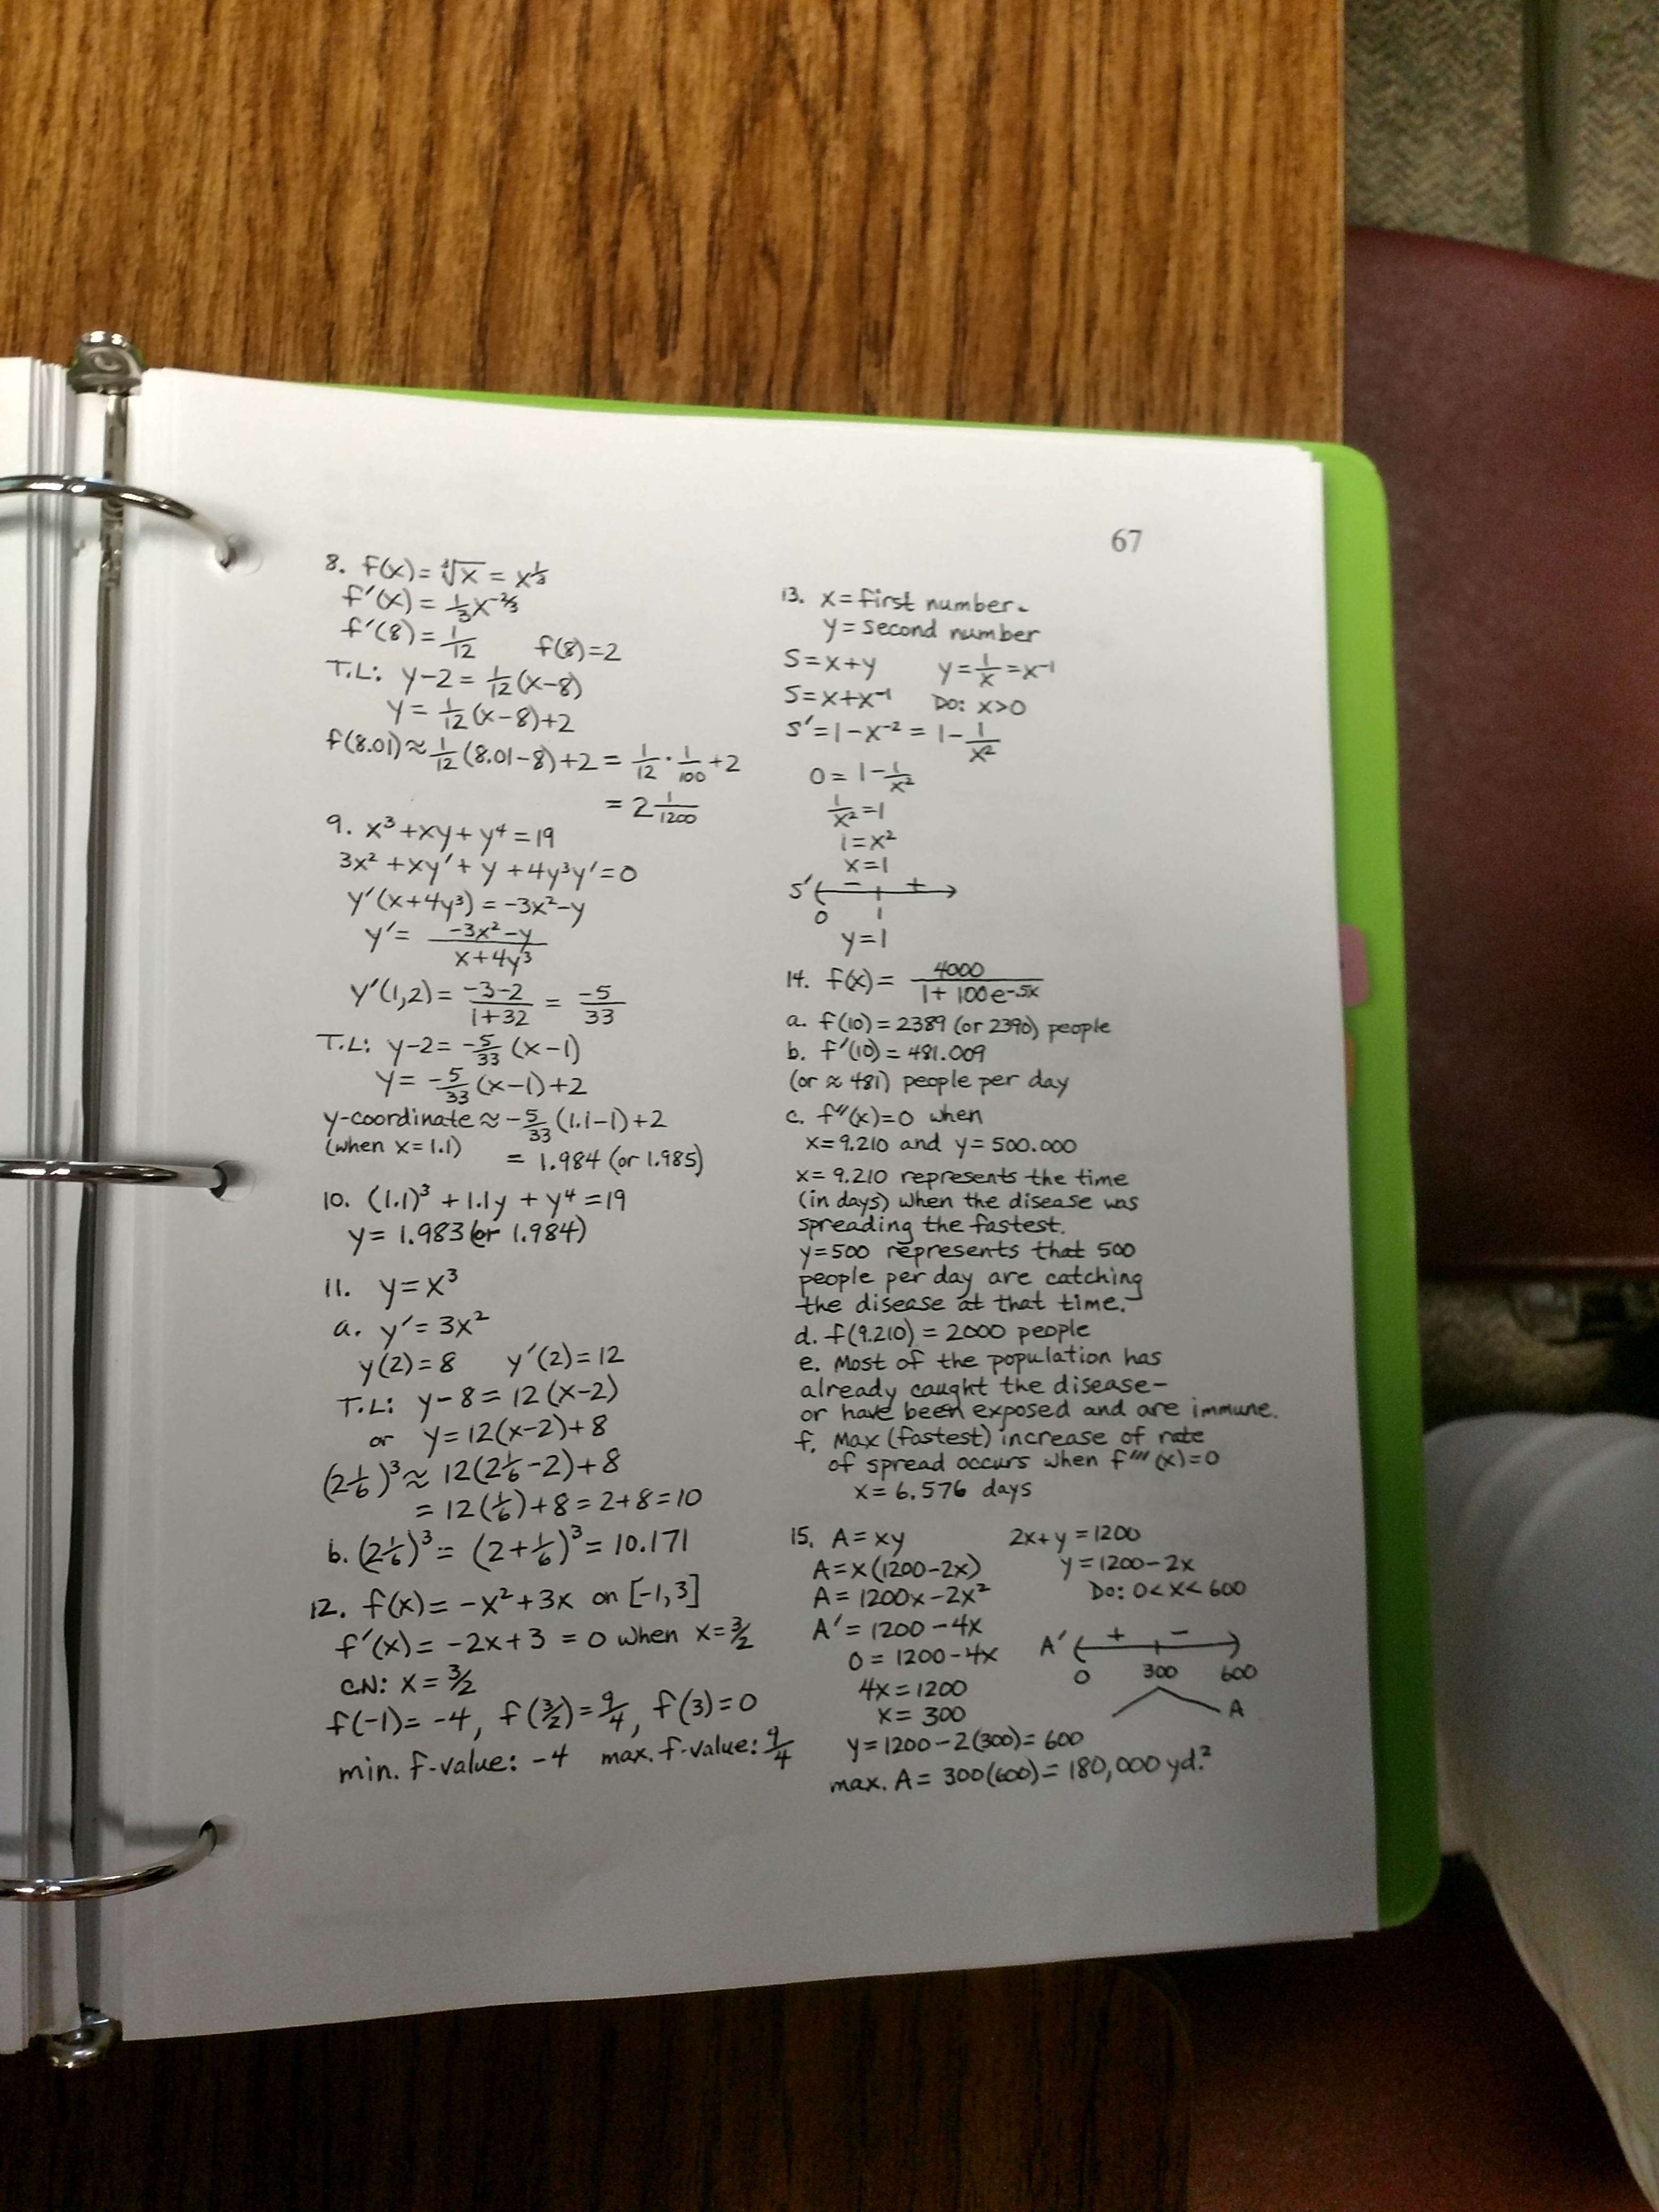 67
8. f(x) = ∛x = x^(1/3)
f'(x) = 1/3 x^(-2/3)
f'(8) = 1/12 f(8)=2
T.L: y-2 = 1/12(x-8)
y = 1/12(x-8)+2
f(8.01) ≈ 1/12(8.01-8)+2 = 1/12 · 1/100 +2
= 2 1/1200
9. x³+xy+y⁴=19
3x²+xy'+y+4y³y'=0
y'(x+4y³) = -3x²-y
y' = (-3x²-y)/(x+4y³)
y'(1,2) = (-3-2)/(1+32) = -5/33
T.L: y-2 = -5/33 (x-1)
y = -5/33 (x-1)+2
y-coordinate ≈ -5/33 (1.1-1)+2
(when x=1.1) = 1.984 (or 1.985)
10. (1.1)³ + 1.1y + y⁴ = 19
y = 1.983 (or 1.984)
11. y = x³
a. y' = 3x²
y(2)=8 y'(2)=12
T.L: y-8 = 12(x-2)
or y = 12(x-2)+8
(2 1/6)³ ≈ 12(2 1/6 - 2)+8
= 12(1/6)+8 = 2+8 = 10
b. (2 1/6)³ = (2+1/6)³ = 10.171
12. f(x) = -x²+3x on [-1,3]
f'(x) = -2x+3 = 0 when x=3/2
C.N: x = 3/2
f(-1) = -4, f(3/2) = 9/4, f(3) = 0
min. f-value: -4 max. f-value: 9/4
13. x = first number.
y = second number
S = x+y y = 1/x = x⁻¹
S = x+x⁻¹ Do: x>0
S' = 1-x⁻² = 1 - 1/x²
0 = 1 - 1/x²
1/x² = 1
1 = x²
x = 1
S' - +
0 1
y = 1
14. f(x) = 4000/(1+100e^(-.5x))
a. f(10) = 2389 (or 2390) people
b. f'(10) = 481.009
(or ≈ 481) people per day
c. f''(x)=0 when
x = 9.210 and y = 500.000
x = 9.210 represents the time
(in days) when the disease was
spreading the fastest.
y=500 represents that 500
people per day are catching
the disease at that time.
d. f(9.210) = 2000 people
e. Most of the population has
already caught the disease-
or have been exposed and are immune.
f. Max (fastest) increase of rate
of spread occurs when f'''(x)=0
x = 6.576 days
15. A = xy 2x+y = 1200
A = x(1200-2x) y = 1200-2x
A = 1200x-2x² Do: 0<x<600
A' = 1200-4x A' + -
0 = 1200-4x 0 300 600
4x = 1200
x = 300 A
y = 1200-2(300) = 600
max. A = 300(600) = 180,000 yd.²